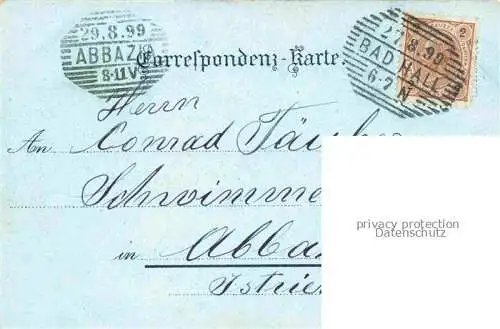 29.8.99
ABBAZIA
8-11V
27.8.99
BAD HALL
6-7N
2
Correspondenz-Karte.
Herrn
An Conrad
Schwimme
privacy protection
Datenschutz
in Abba
Istrie